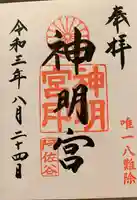 奉拝
唯一八難除
神明宮
神明
宮印
阿佐谷
令和三年八月二十四日